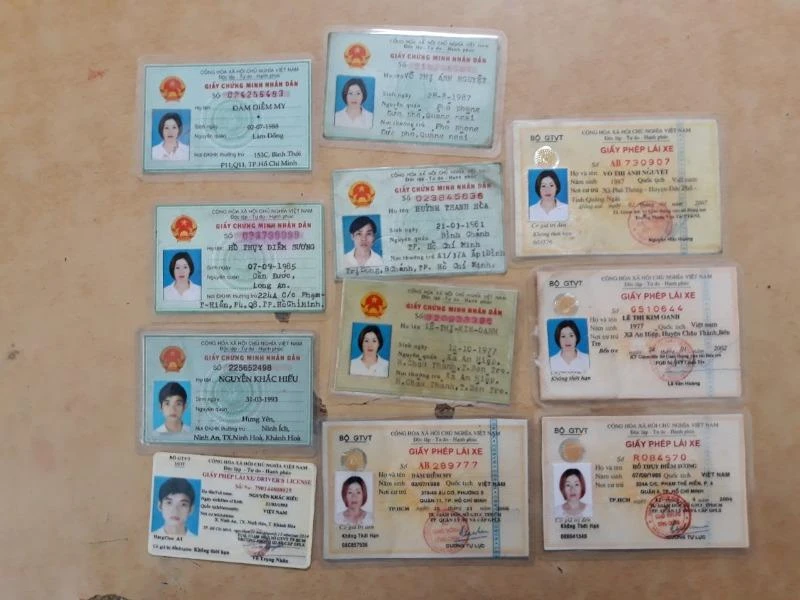 CỘNG HÒA XÃ HỘI CHỦ NGHĨA VIỆT NAM
Độc lập - Tự do - Hạnh phúc
GIẤY CHỨNG MINH NHÂN DÂN
SỐ
Họ tên ĐÀM DIỄM MY
Sinh ngày 02-07-1988
Nguyên quán Lâm Đồng
Nơi ĐKHK thường trú 153C, Bình Thới
P11,Q11, TP.Hồ Chí Minh
CỘNG HÒA XÃ HỘI CHỦ NGHĨA VIỆT NAM
Độc lập - Tự do - Hạnh phúc
GIẤY CHỨNG MINH NHÂN DÂN
SỐ
Họ tên VÕ THỊ ÁNH NGUYỆT
Sinh ngày 28-8-1987
Nguyên quán Phổ Phong
Đức phổ, Quảng ngãi
Nơi thường trú Phổ Phong
Đức phổ, Quảng ngãi
BỘ GTVT
CỘNG HÒA XÃ HỘI CHỦ NGHĨA VIỆT NAM
Độc lập - Tự do - Hạnh phúc
GIẤY PHÉP LÁI XE
Số AB 730907
Họ và tên VÕ THỊ ÁNH NGUYỆT
Năm sinh 1987 Quốc tịch Việt nam
Nơi cư trú
Tỉnh Quảng Ngãi
2007
Có giá trị đến
Không thời hạn
CỘNG HÒA XÃ HỘI CHỦ NGHĨA VIỆT NAM
Độc lập - Tự do - Hạnh phúc
GIẤY CHỨNG MINH NHÂN DÂN
SỐ
Họ tên HỒ THỤY DIỄM SƯƠNG
Sinh ngày 07-09-1985
Nguyên quán Cần Đước,
Long An.
Nơi ĐKHK thường trú 224A C/c Phạm-
T-Hiển, P4, Q8, TP.Hồ Chí Minh.
CỘNG HÒA XÃ HỘI CHỦ NGHĨA VIỆT NAM
Độc lập - Tự do - Hạnh phúc
GIẤY CHỨNG MINH NHÂN DÂN
SỐ 023845836
Họ tên HUỲNH THANH HÒA
Sinh ngày 21-03-1981
Nguyên quán Bình Chánh
TP. Hồ Chí Minh
Nơi thường trú
B.Chánh, TP. Hồ Chí Minh.
BỘ GTVT
CỘNG HÒA XÃ HỘI CHỦ NGHĨA VIỆT NAM
Độc lập - Tự do - Hạnh phúc
GIẤY PHÉP LÁI XE
Số Q510644
Họ và tên LÊ THỊ KIM OANH
Năm sinh 1977 Quốc tịch Việt nam
Nơi cư trú Xã An Hiệp, Huyện Châu Thành, Bến
Tre
2002
Không thời hạn
Lê Văn Hoàng
CỘNG HÒA XÃ HỘI CHỦ NGHĨA VIỆT NAM
Độc lập - Tự do - Hạnh phúc
GIẤY CHỨNG MINH NHÂN DÂN
SỐ 225652498
Họ tên NGUYỄN KHẮC HIẾU
Sinh ngày 31-03-1993
Nguyên quán Hưng Yên,
Nơi ĐKHK thường trú Ninh Ích,
Ninh An, TX.Ninh Hoà, Khánh Hoà
CỘNG HÒA XÃ HỘI CHỦ NGHĨA VIỆT NAM
Độc lập - Tự do - Hạnh phúc
GIẤY CHỨNG MINH NHÂN DÂN
SỐ
Họ tên LÊ-THỊ-KIM-OANH
Sinh ngày 12-10-1977
Nguyên quán Xã An Hiệp,
H.Châu Thành, T.Bến Tre.
Nơi thường trú Xã An Hiệp,
H.Châu Thành, T.Bến Tre.
BỘ GTVT
CỘNG HÒA XÃ HỘI CHỦ NGHĨA VIỆT NAM
Độc lập - Tự do - Hạnh phúc
GIẤY PHÉP LÁI XE/DRIVER'S LICENSE
Họ tên NGUYỄN KHẮC HIẾU
31/03/1993
VIỆT NAM
X. Ninh An, TX. Ninh Hòa, T. Khánh Hòa
Hạng/Class A1
Không thời hạn
Võ Trọng Nhân
BỘ GTVT
CỘNG HÒA XÃ HỘI CHỦ NGHĨA VIỆT NAM
Độc lập - Tự do - Hạnh phúc
GIẤY PHÉP LÁI XE
Số AB 289777
Họ và tên ĐÀM DIỄM MY
Năm sinh 02/07/1988 Quốc tịch VIỆT NAM
Nơi cư trú
QUẬN 11, TP. HỒ CHÍ MINH
TP.HCM 2006
Có giá trị đến
Không Thời Hạn
DƯƠNG TỰ LỰC
BỘ GTVT
CỘNG HÒA XÃ HỘI CHỦ NGHĨA VIỆT NAM
Độc lập - Tự do - Hạnh phúc
GIẤY PHÉP LÁI XE
Số R084570
Họ và tên HỒ THỤY DIỄM SƯƠNG
Năm sinh 07/09/1985 Quốc tịch VIỆT NAM
Nơi cư trú 224A C/C PHẠM THẾ HIỂN, P. 4
QUẬN 8, TP. HỒ CHÍ MINH
TP.HCM 2004
Có giá trị đến
Không Thời Hạn
DƯƠNG TỰ LỰC